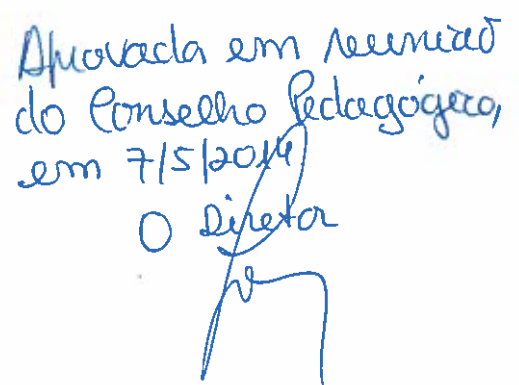 Aprovada em reunião
do Conselho Pedagógico,
em 7/5/2014
O Diretor